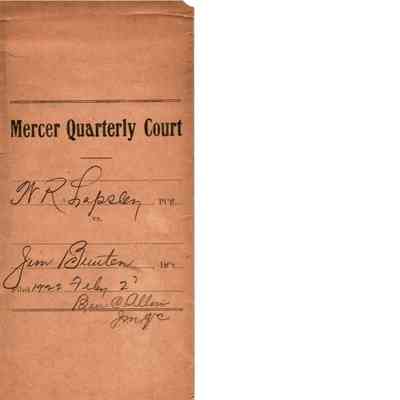 Mercer Quarterly Court
W R. Lapsley Pl'ff.
vs.
Jim Bunten Def.
Filed 1922 Feby 2
Ben C Allin